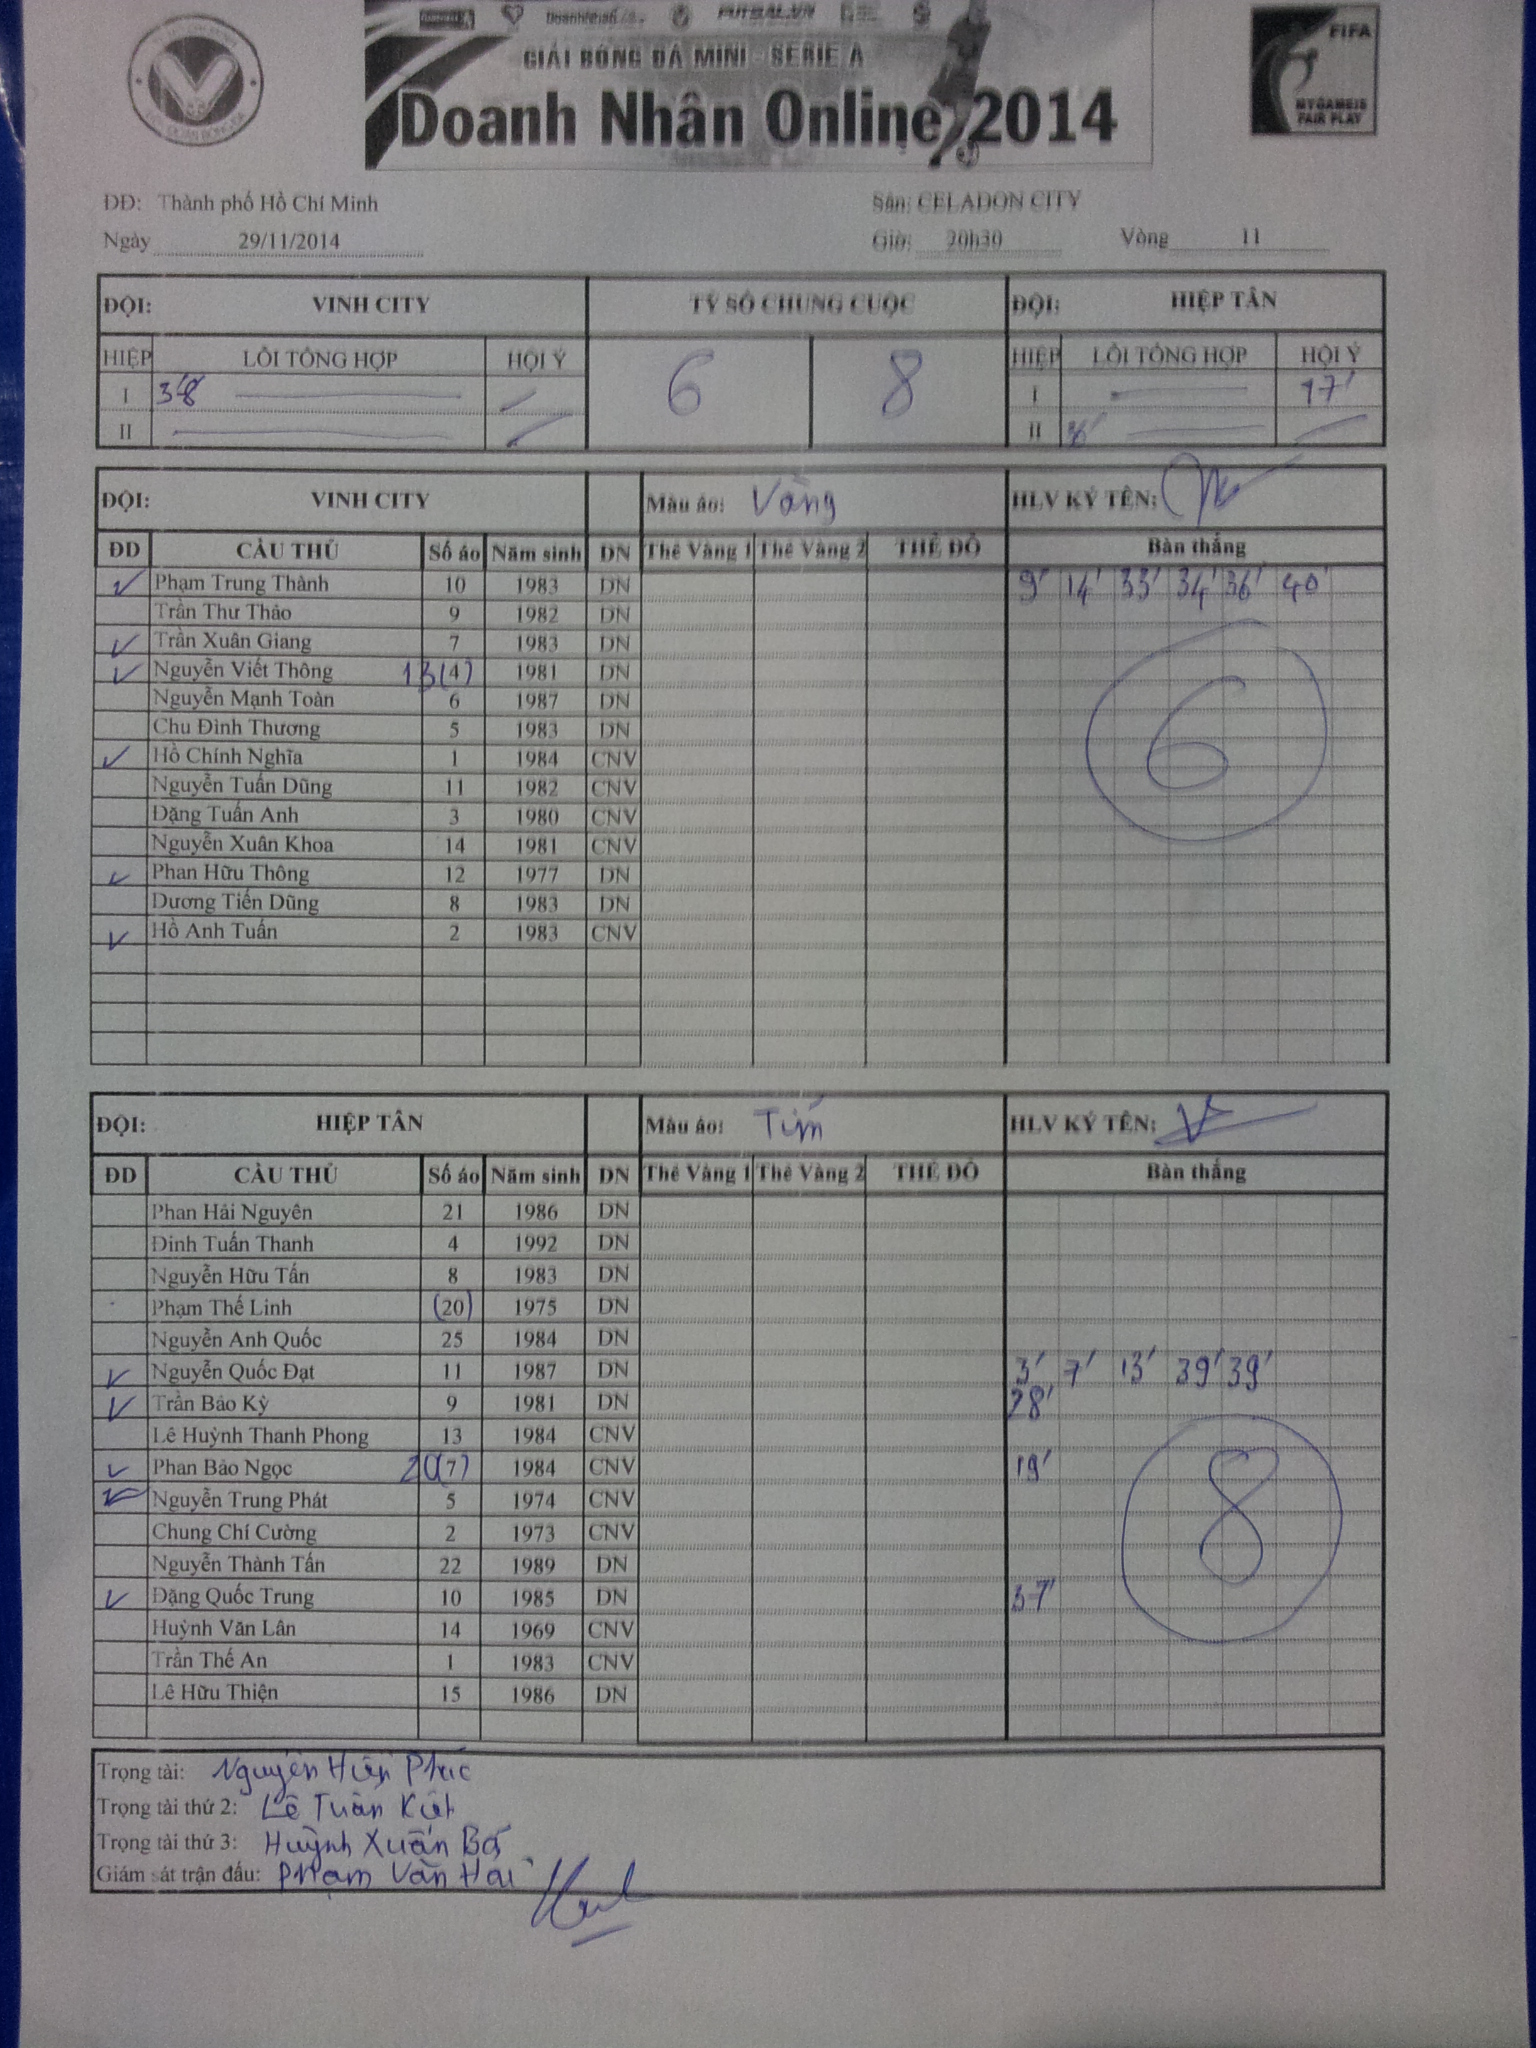 FUTSAL.VN
FIFA
GIẢI BÓNG ĐÁ MINI - SERIE A
Doanh Nhân Online 2014
MY GAME IS
FAIR PLAY
ĐĐ: Thành phố Hồ Chí Minh Sân: CELADON CITY
Ngày 29/11/2014 Giờ: 20h30 Vòng 11
ĐỘI: VINH CITY TỶ SỐ CHUNG CUỘC ĐỘI: HIỆP TÂN
HIỆP LỖI TỔNG HỢP HỘI Ý 6 8 HIỆP LỖI TỔNG HỢP HỘI Ý
I I 17'
II II
ĐỘI: VINH CITY Màu áo: Vàng HLV KÝ TÊN:
ĐD CẦU THỦ Số áo Năm sinh DN Thẻ Vàng 1 Thẻ Vàng 2 THẺ ĐỎ Bàn thắng
Phạm Trung Thành 10 1983 DN 9' 14' 33' 34' 36' 40'
Trần Thư Thảo 9 1982 DN
Trần Xuân Giang 7 1983 DN
Nguyễn Viết Thông 13 (4) 1981 DN
Nguyễn Mạnh Toàn 6 1987 DN
Chu Đình Thương 5 1983 DN
Hồ Chính Nghĩa 1 1984 CNV
6
Nguyễn Tuấn Dũng 11 1982 CNV
Đặng Tuấn Anh 3 1980 CNV
Nguyễn Xuân Khoa 14 1981 CNV
Phan Hữu Thông 12 1977 DN
Dương Tiến Dũng 8 1983 DN
Hồ Anh Tuấn 2 1983 CNV
ĐỘI: HIỆP TÂN Màu áo: Tím HLV KÝ TÊN:
ĐD CẦU THỦ Số áo Năm sinh DN Thẻ Vàng 1 Thẻ Vàng 2 THẺ ĐỎ Bàn thắng
Phan Hải Nguyên 21 1986 DN
Đinh Tuấn Thanh 4 1992 DN
Nguyễn Hữu Tấn 8 1983 DN
Phạm Thế Linh (20) 1975 DN
Nguyễn Anh Quốc 25 1984 DN
Nguyễn Quốc Đạt 11 1987 DN 3' 7' 13' 39' 39'
Trần Bảo Kỳ 9 1981 DN 28'
Lê Huỳnh Thanh Phong 13 1984 CNV
Phan Bảo Ngọc 20 (7) 1984 CNV 19'
Nguyễn Trung Phát 5 1974 CNV
8
Chung Chí Cường 2 1973 CNV
Nguyễn Thành Tấn 22 1989 DN
Đặng Quốc Trung 10 1985 DN 37'
Huỳnh Văn Lân 14 1969 CNV
Trần Thế An 1 1983 CNV
Lê Hữu Thiện 15 1986 DN
Trọng tài: Nguyễn Hiền Phúc
Trọng tài thứ 2: Lê Tuấn Kiệt
Trọng tài thứ 3: Huỳnh Xuân Bá
Giám sát trận đấu: Phạm Văn Hai